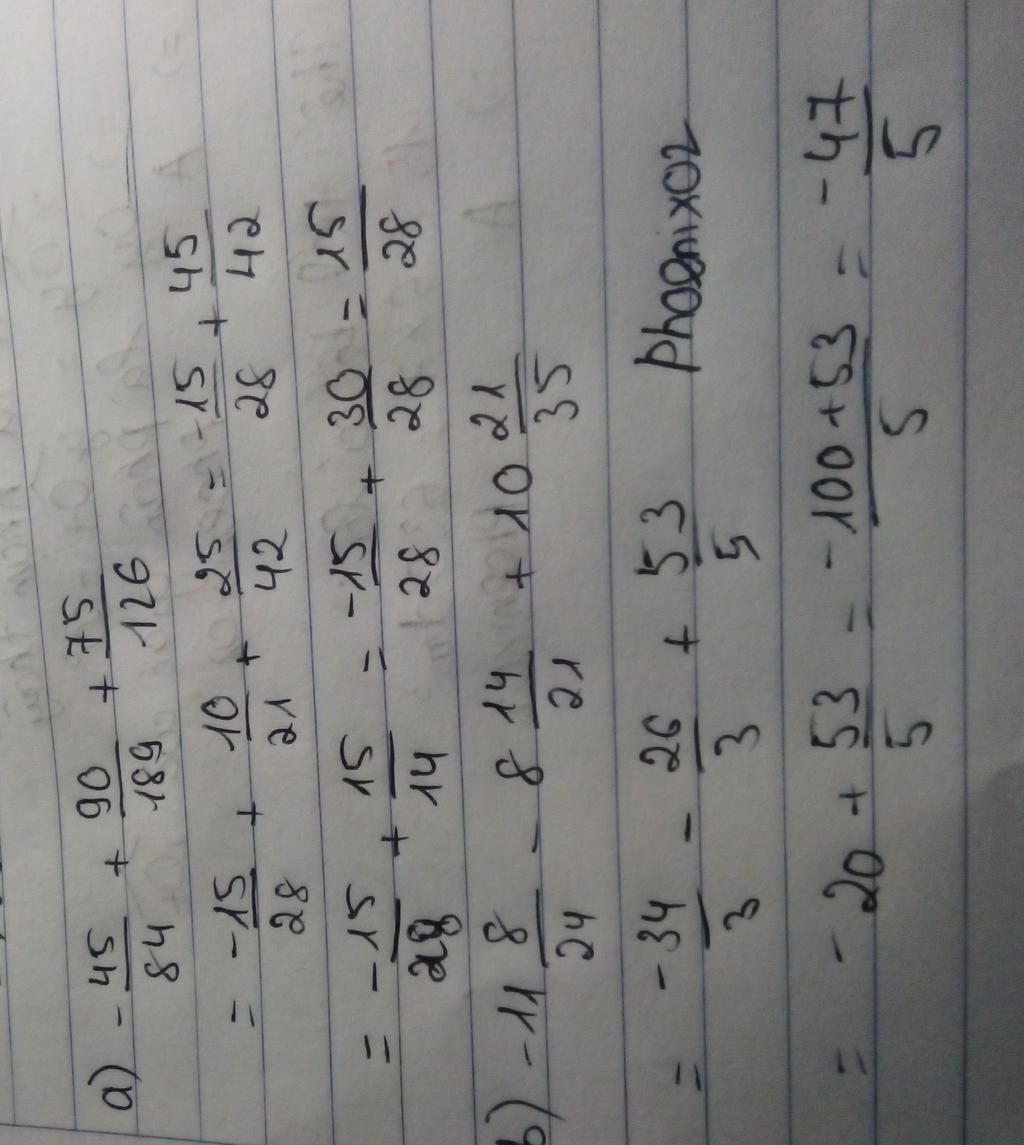 a) -45/84 + 90/189 + 75/126
= -15/28 + 10/21 + 25/42 = -15/28 + 45/42
= -15/28 + 15/14 = -15/28 + 30/28 = 15/28
b) -11 8/24 - 8 14/21 + 10 21/35
= -34/3 - 26/3 + 53/5 Phoenixoz
= -20 + 53/5 = -100+53/5 = -47/5